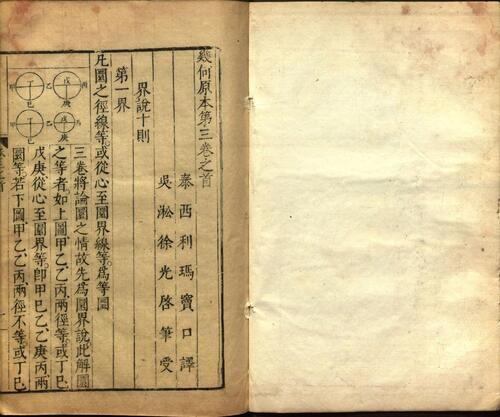 幾何原本第三卷之首
泰西利瑪竇口譯
吳淞徐光啓筆受
界說十則
第一界
凡圜之徑線等或從心至圜界線等爲等圜
三卷將論圜之情故先爲圜界說此解圜
之等者如上圖甲乙乙丙兩徑等或丁己
戊庚從心至圜界等卽甲己乙乙庚丙兩
圜等若下圖甲乙乙丙兩徑不等或丁己
丁
己
戊
庚
乙
丁
己
戊
庚
乙